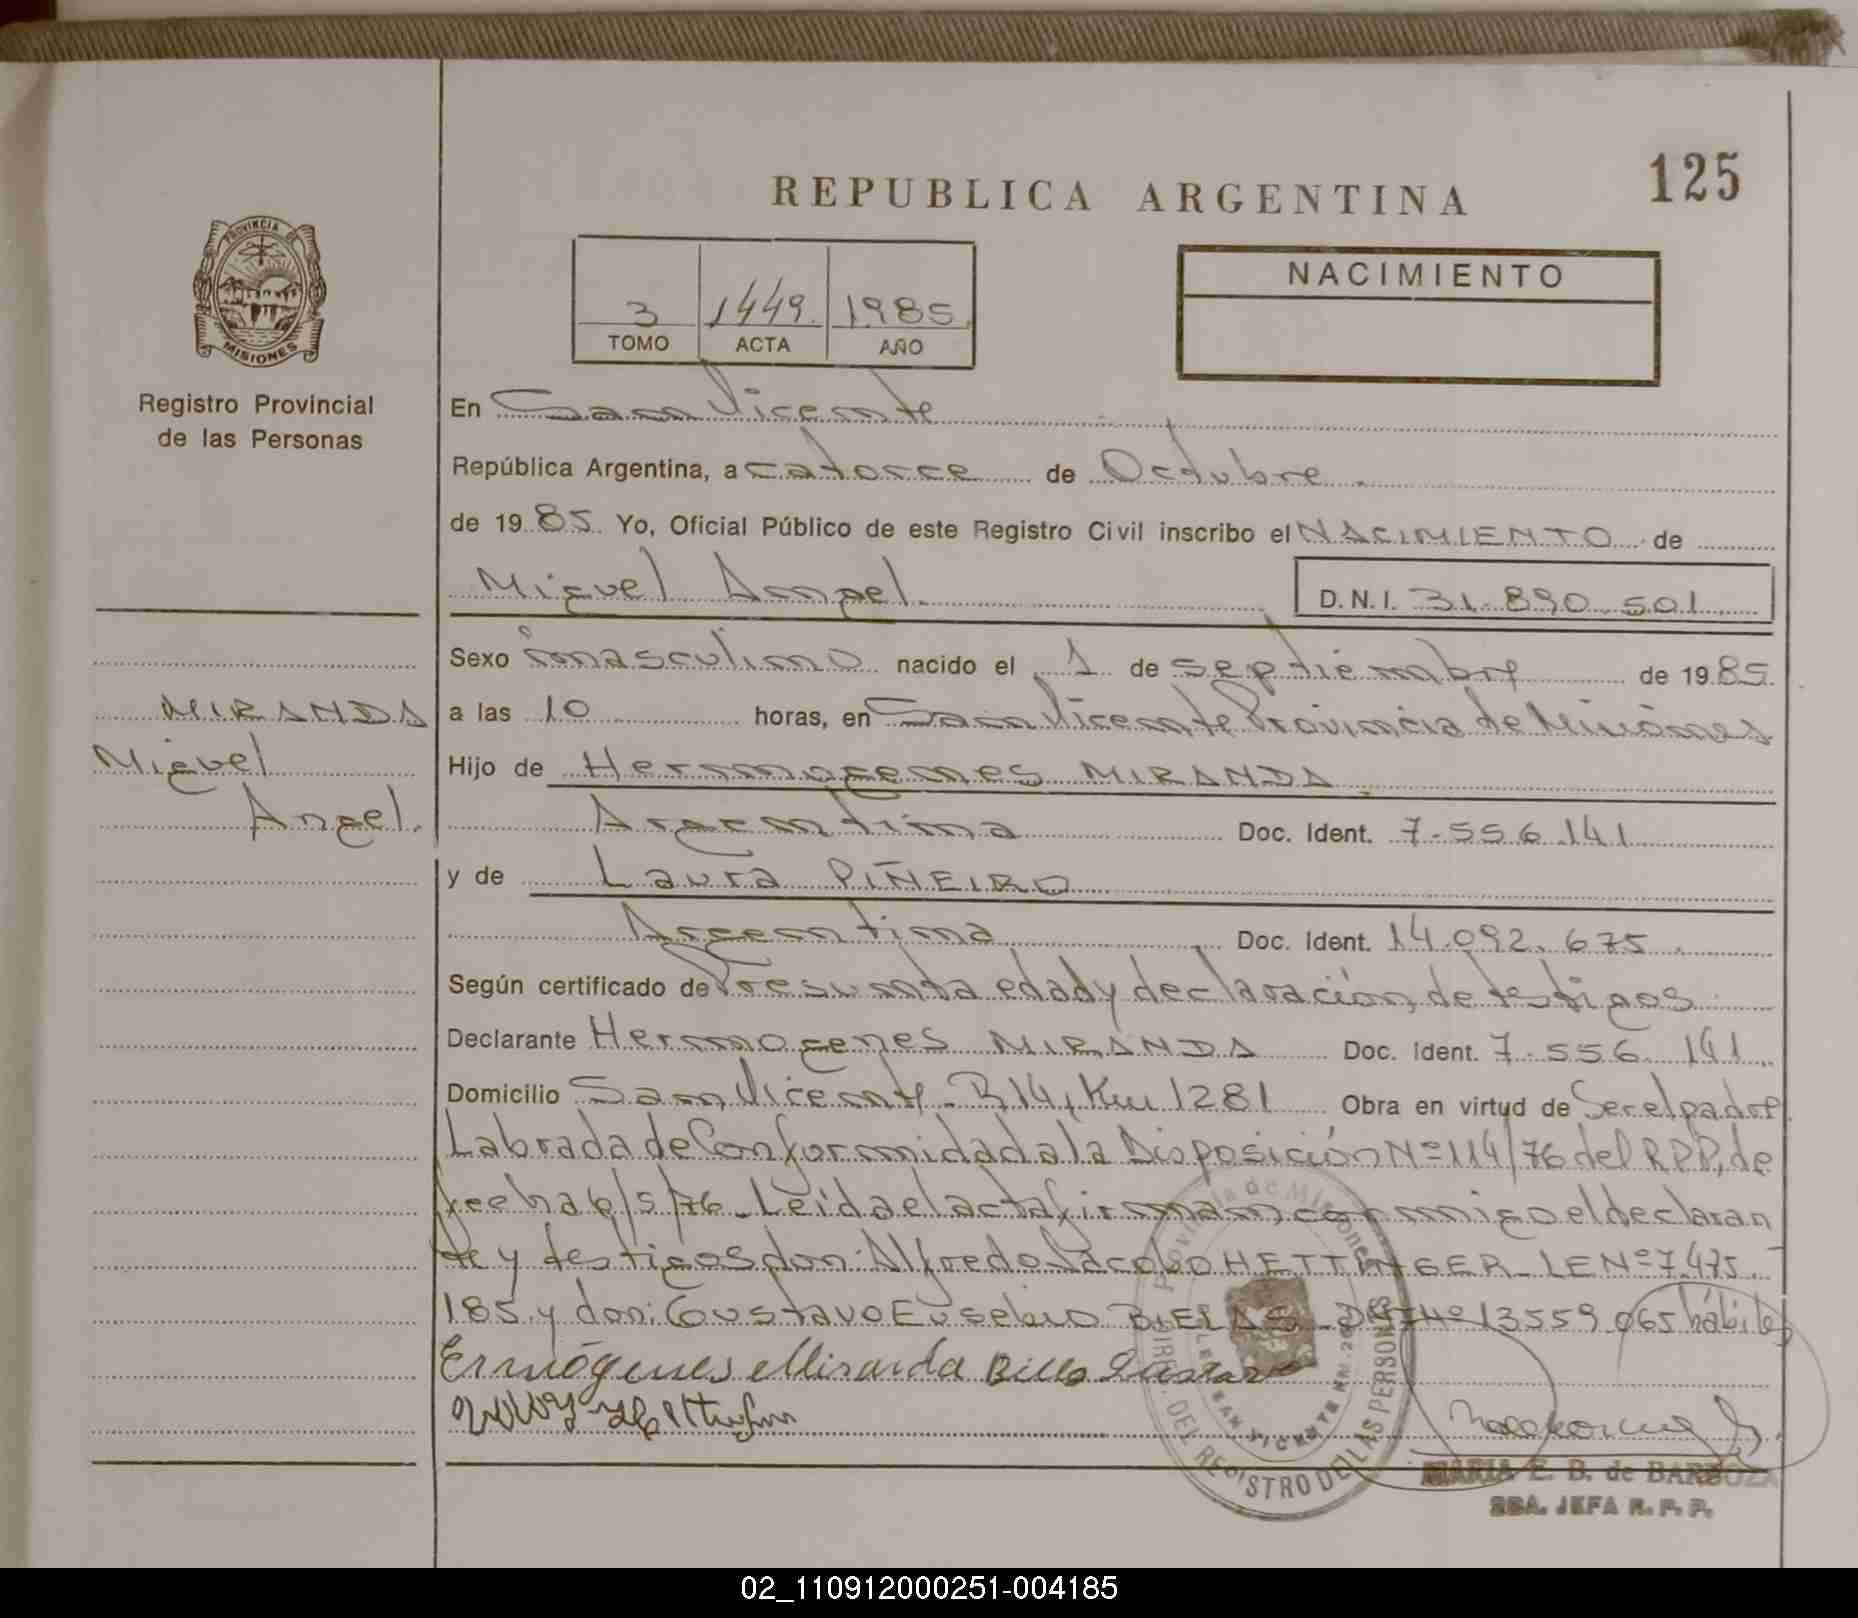 REPUBLICA ARGENTINA
125
PROVINCIA DE
MISIONES
Registro Provincial
de las Personas
3 1449 1985
TOMO ACTA AÑO
NACIMIENTO
En San Vicente
República Argentina, a catorce de Octubre.
de 1985. Yo, Oficial Público de este Registro Civil inscribo el NACIMIENTO de
Miguel Angel. D.N.I. 31.890.501
Sexo masculino nacido el 1 de septiembre de 1985
MIRANDA
Miguel
Angel.
a las 10 horas, en San Vicente Provincia de Misiones
Hijo de Hermogenes MIRANDA.
Argentina Doc. Ident. 7.556.141
y de Laura PIÑEIRO
Argentina Doc. Ident. 14.092.675.
Según certificado de Presunta edad y declaración, de testigos
Declarante Hermogenes MIRANDA Doc. Ident. 7.556.141
Domicilio San Vicente - R 14, Km 1281 Obra en virtud de Ser el padre.
Labrada de Conformidad a la Disposición Nº 114/76 del RPP, de
fecha 6/5/76. Leída el acta firman conmigo el declaran
te y testigos don: Alfredo Jacobo HETTINGER - LE Nº 7.475.
185 y don: Gustavo Eusebio 13559065 hábiles
Ermógenes Miranda
Provincia de Misiones
DEL REGISTRO DE LAS PERSONAS
SAN VICENTE
MARIA E. B. de BARBOZA
SBA. JEFA R. P. P.
02_110912000251-004185